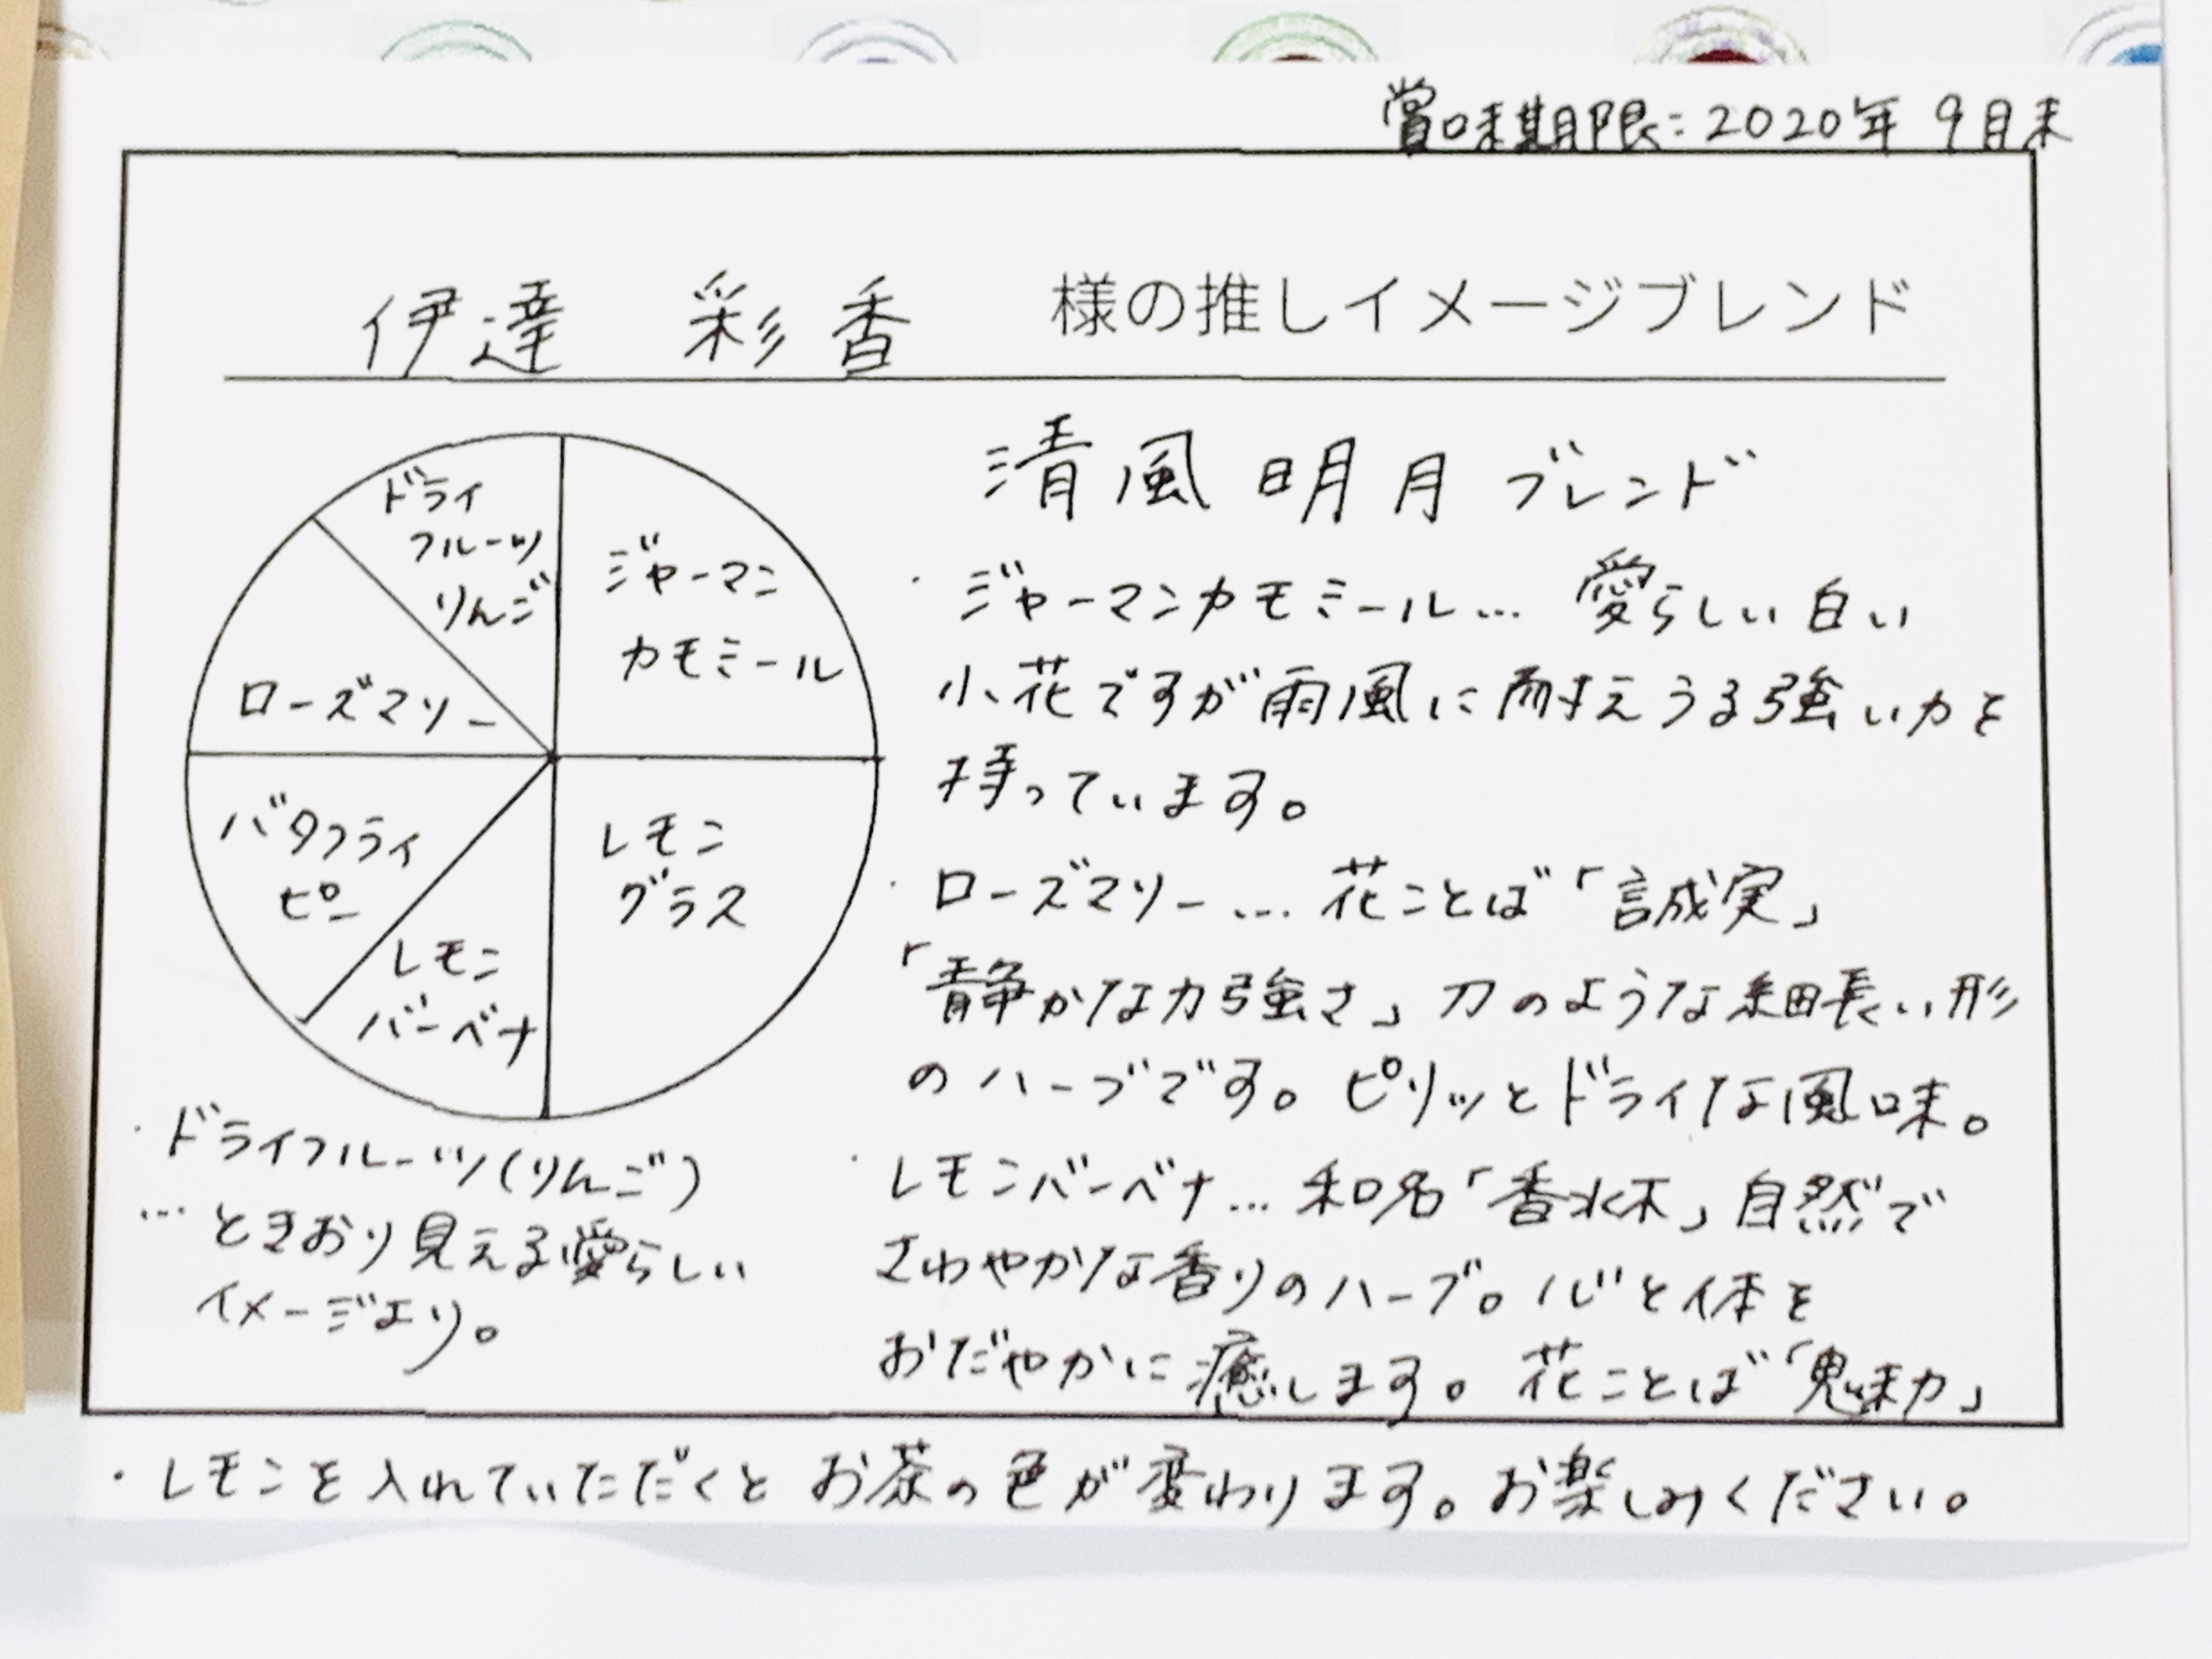 賞味期限：2020年 9月末
伊達 彩香 様の推しイメージブレンド
ドライ
フルーツ
りんご
ジャーマン
カモミール
ローズマリー
バタフライ
ピー
レモン
バーベナ
レモン
グラス
清風明月ブレンド
・ジャーマンカモミール… 愛らしい白い
小花ですが雨風に耐えうる強い力を
持っています。
・ローズマリー… 花ことば「誠実」
「静かな力強さ」刀のような細長い形
のハーブです。ピリッとドライな風味。
・レモンバーベナ… 和名「香水木」自然で
さわやかな香りのハーブ。心と体を
おだやかに癒します。花ことば「魅力」
・ドライフルーツ(りんご)
…ときおり見える愛らしい
イメージより。
・レモンを入れていただくとお茶の色が変わります。お楽しみください。